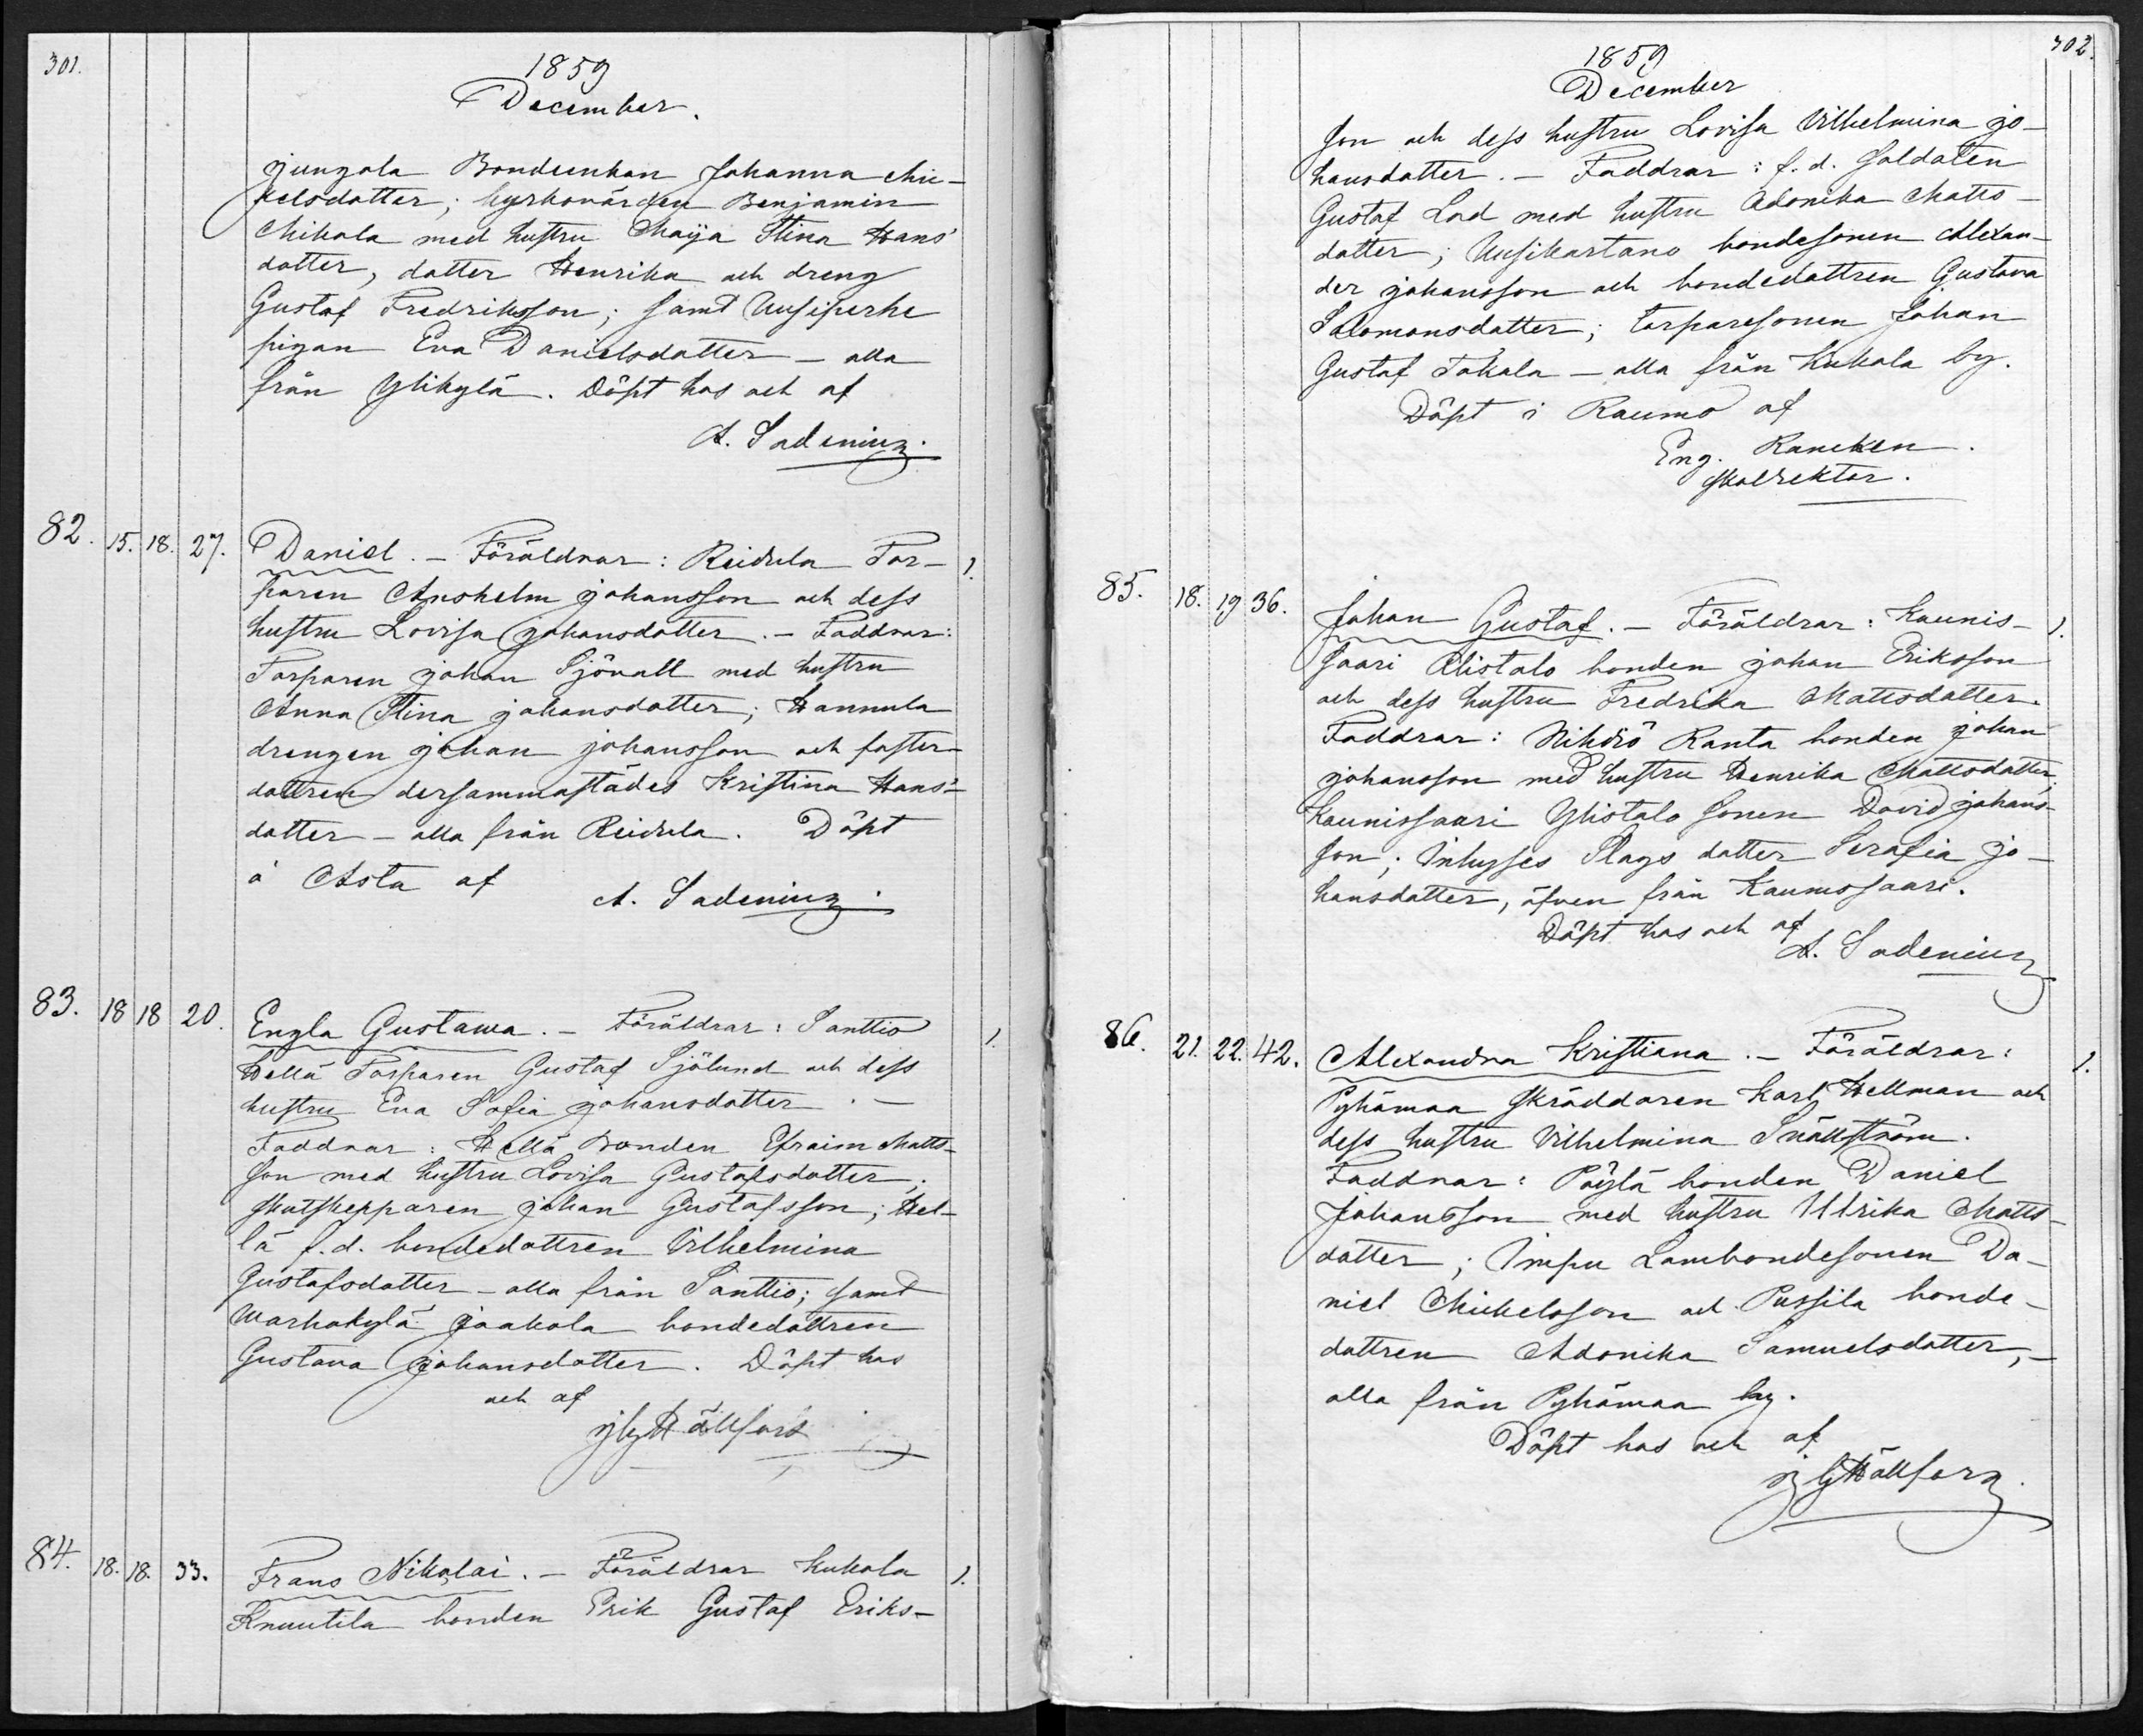 301.
1859
December.
jungola Bondeenkan Johanna Mic-
kelsdotter; kyrkovärden Benjamin
Mikola med hustru Maija Stina Hans-
dotter, dotter Henrika och dreng
Gustaf Fredriksson; samt Uusiperhe
pigan Eva Danielsdotter – alla
från Ylikylä. Döpt hos och af
A. Sadenius.
82. 15. 18. 27. Daniel. – Föräldrar: Reidula Tor- 1.
paren Anshelm Johansson och dess
hustru Lovisa Johansdotter. – Faddrar:
Torparen Johan Sjövall med hustru
Anna Stina Johansdotter; Hannula
drengen Johan Johansson och foster-
dottren dersammastädes Kristina Hans-
dotter – alla från Reidula. Döpt
å Asta af A. Sadenius.
83. 18 18 20. Engla Gustawa. – Föräldrar: Santtio 1.
Hellä Torparen Gustaf Sjölund och dess
hustru Eva Sofia Johansdotter. –
Faddrar: Hellä Bonden Efraim Matts-
son med hustru Lovisa Gustafsdotter;
skutskepparen Johan Gustafsson; Hel-
lä f.d. bondedottren Vilhelmina
Gustafsdotter – alla från Santtio; samt
Warhokylä Jaakola bondedottren
Gustava Johansdotter. Döpt hos
och af
Hällfors
84. 18. 18. 33. Frans Nikolai. – Föräldrar Kukola 1.
Knuutila bonden Erik Gustaf Eriks-
302.
1859
December
son och dess hustru Lovisa Vilhelmina Jo-
hansdotter. – Faddrar: f.d. Soldaten
Gustaf Lod med hustru Adonika Matts-
dotter; Uusikartano bondesonen Alexan-
der Johansson och bondedottren Gustava
Salomonsdotter; torparesonen Johan
Gustaf Takala – alla från Kukola by.
Döpt i Raumo af
Eng. Rancken.
Skolrektor.
85. 18. 19 36. Johan Gustaf. – Föräldrar: Kaunis- 1.
saari Alistalo bonden Johan Eriksson
och dess hustru Fredrika Mattsdotter.
Faddrar: Nihdiö Ranta bonden Johan
Johansson med hustru Henrika Mattsdotter,
Kaunissaari Ylistalo sonen David Johans-
son; Inhyses Slags dotter Serafia Jo-
hansdotter, äfven från Kaunissaari.
Döpt hos och af
A. Sadenius
86. 21. 22. 42. Alexandra Kristiana. – Föräldrar: 1.
Pyhämaa Skräddaren Karl Hellman och
dess hustru Vilhelmina Snällström.
Faddrar: Pöylä bonden Daniel
Johansson med hustru Ulrika Matts-
dotter; Impu Lambondesonen Da-
niel Mickelsson och Pussila bonde-
dottren Adonika Samuelsdotter, –
alla från Pyhämaa by.
Döpt hos och af
Hällfors.